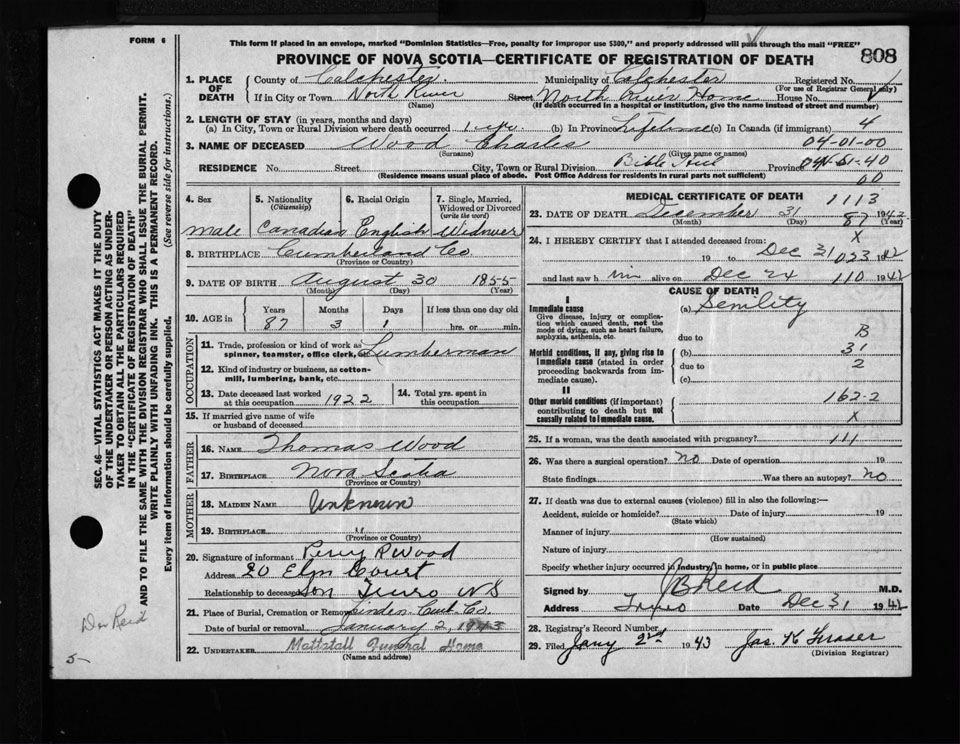 FORM 6
This form if placed in an envelope, marked "Dominion Statistics—Free, penalty for improper use $300," and properly addressed will pass through the mail "FREE"
PROVINCE OF NOVA SCOTIA—CERTIFICATE OF REGISTRATION OF DEATH 808
1. PLACE OF DEATH County of Colchester Municipality of Colchester Registered No.
(For use of Registrar General only)
If in City or Town North River Street North River Home House No.
(Name) (If death occurred in a hospital or institution, give the name instead of street and number)
2. LENGTH OF STAY (in years, months and days) 4
(a) In City, Town or Rural Division where death occurred 1 yr. (b) In Province Lifetime (c) In Canada (if immigrant)
3. NAME OF DECEASED Wood Charles 04-01-00
(Surname) (Given name or names)
RESIDENCE No. Street City, Town or Rural Division Bible Hill Province
(Residence means usual place of abode. Post Office Address for residents in rural parts not sufficient) 00
4. Sex 5. Nationality (Citizenship) 6. Racial Origin 7. Single, Married, Widowed or Divorced (write the word)
Male Canadian English Widower
8. BIRTHPLACE Cumberland Co
(Province or Country)
9. DATE OF BIRTH August 30 1855
(Month) (Day) (Year)
10. AGE in Years Months Days If less than one day old
87 3 1 hrs. or min.
OCCUPATION
11. Trade, profession or kind of work as spinner, teamster, office clerk, Lumberman
12. Kind of industry or business, as cotton-mill, lumbering, bank, etc.
13. Date deceased last worked at this occupation 1922 14. Total yrs. spent in this occupation
15. If married give name of wife or husband of deceased
FATHER
16. NAME Thomas Wood
17. BIRTHPLACE Nova Scotia
(Province or Country)
MOTHER
18. MAIDEN NAME Unknown
19. BIRTHPLACE "
(Province or Country)
20. Signature of informant Percy P Wood
Address 20 Elm Court
Relationship to deceased Son Truro NS
21. Place of Burial, Cremation or Removal Linden Cumb. Co.
Date of burial or removal January 2, 1943
22. UNDERTAKER Mattatall Funeral Home
(Name and address)
MEDICAL CERTIFICATE OF DEATH 1113
23. DATE OF DEATH December 31 87 1942
(Month) (Day) (Year)
24. I HEREBY CERTIFY that I attended deceased from: X
19 to Dec 31 023 1942
and last saw h im alive on Dec 24 110 1942
CAUSE OF DEATH
I
Immediate cause
Give disease, injury or complication which caused death, not the mode of dying, such as heart failure, asphyxia, asthenia, etc.
(a) Senility
due to B
Morbid conditions, if any, giving rise to immediate cause (stated in order proceeding backwards from immediate cause).
(b) 31
due to 2
(c)
II
Other morbid conditions (if important) contributing to death but not causally related to immediate cause.
162-2
X
25. If a woman, was the death associated with pregnancy? 111
26. Was there a surgical operation? No Date of operation 19
State findings Was there an autopsy? No
27. If death was due to external causes (violence) fill in also the following:—
Accident, suicide or homicide? Date of injury 19
(State which)
Manner of injury
(How sustained)
Nature of injury
Specify whether injury occurred in industry, in home, or in public place
Signed by J B Reid M.D.
Address Truro Date Dec 31 1942
28. Registrar's Record Number
29. Filed Jany 2nd 1943 Jas. K Fraser
(Division Registrar)
SEC. 46—VITAL STATISTICS ACT MAKES IT THE DUTY
OF THE UNDERTAKER OR PERSON ACTING AS UNDERTAKER TO OBTAIN ALL THE PARTICULARS REQUIRED
IN THE "CERTIFICATE OF REGISTRATION OF DEATH"
AND TO FILE THE SAME WITH THE DIVISION REGISTRAR WHO SHALL ISSUE THE BURIAL PERMIT.
WRITE PLAINLY WITH UNFADING INK. THIS IS A PERMANENT RECORD.
Every item of information should be carefully supplied. (See reverse side for instructions.)
Dr Reid
5-